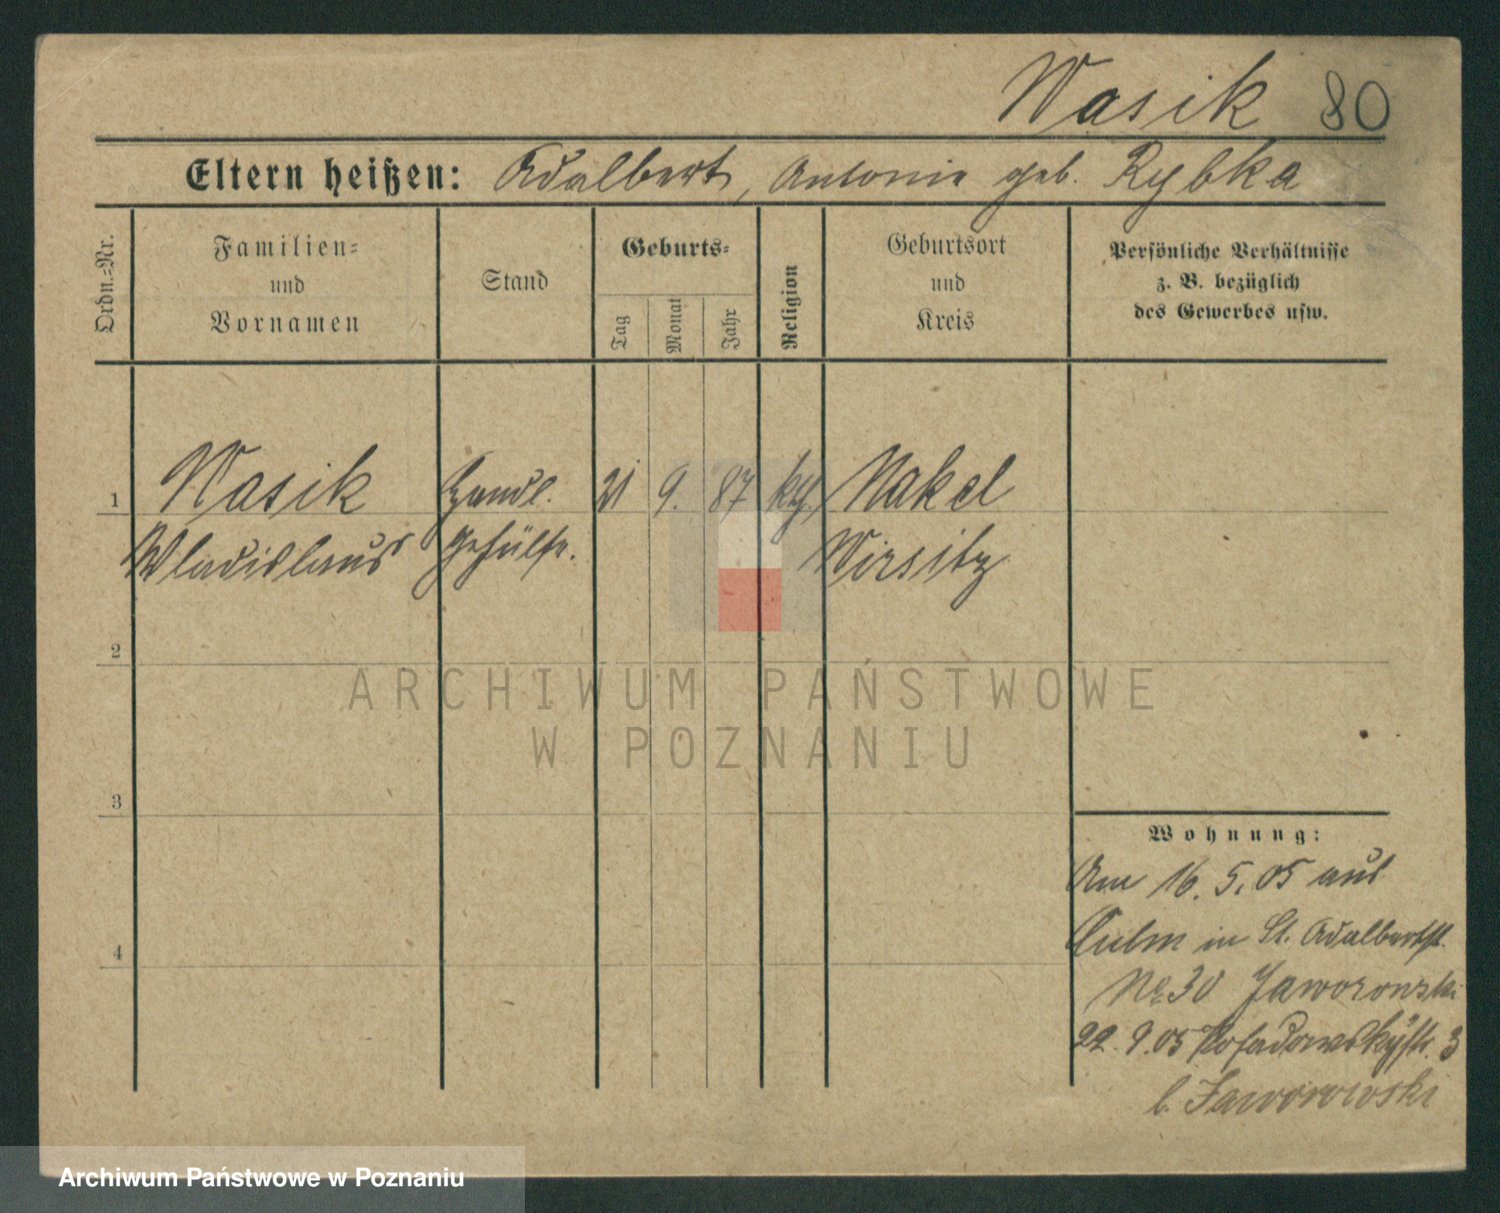 Wasik 80
Eltern heißen: Adalbert, Antonie geb. Rybka
Ordn.=Nr.
Familien=
und
Vornamen
Stand
Geburts=
Tag
Monat
Jahr
Religion
Geburtsort
und
Kreis
Persönliche Verhältnisse
z. B. bezüglich
des Gewerbes usw.
1 Wasik Handl. 21 9. 87 Nakel
Wladislaus Gehülfe. Wirsitz
2
3
4
Wohnung:
Am 16. 5. 05 aus
Culm in St. Adalbertst.
No 30 Jaworowski
22. 9. 05 Posadowskystr. 3
b. Jaworowski
ARCHIWUM PAŃSTWOWE
W POZNANIU
Archiwum Państwowe w Poznaniu